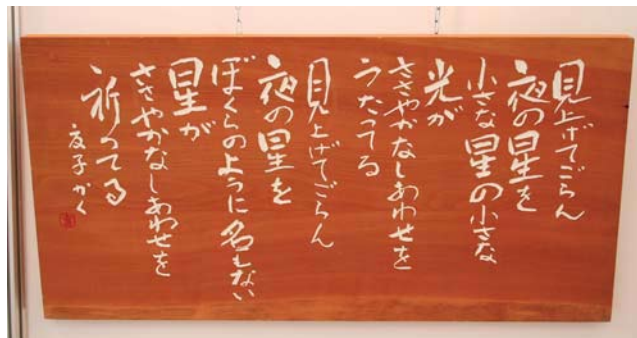 見上げてごらん
夜の星を
小さな星の小さな
光が
ささやかなしあわせを
うたってる
見上げてごらん
夜の星を
ぼくらのように名もない
星が
ささやかなしあわせを
祈ってる
友子かく